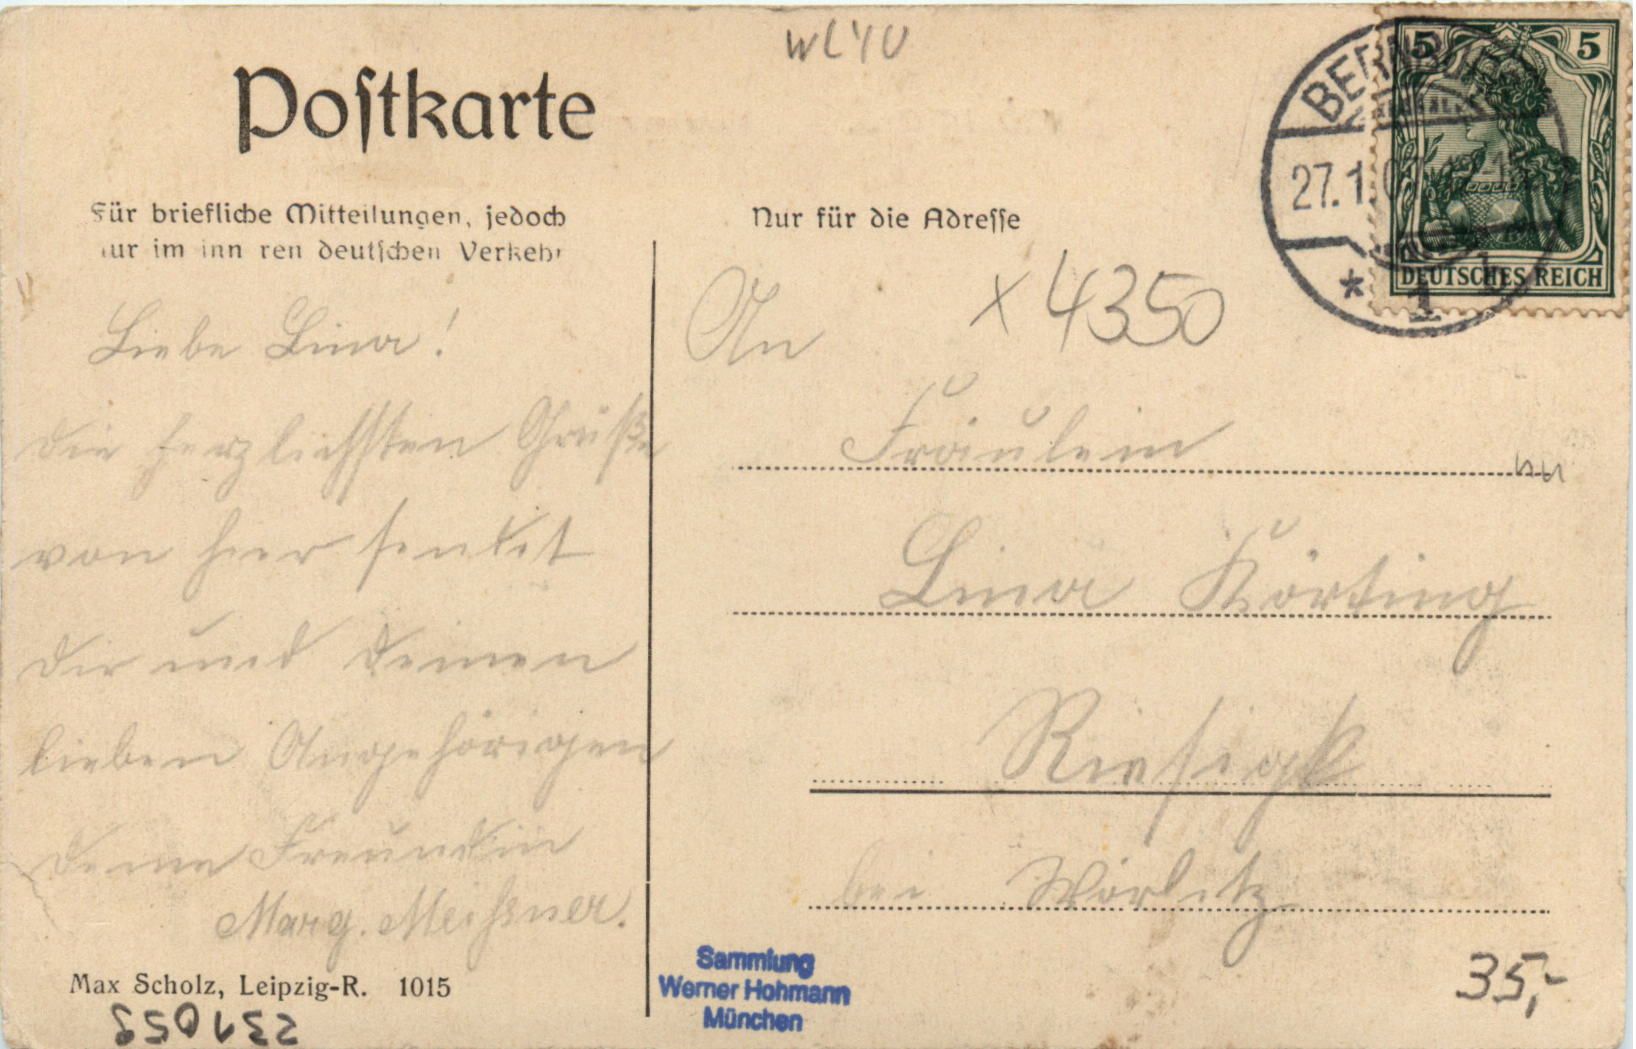 WL40
Postkarte
Für briefliche Mitteilungen, jedoch
nur im inneren deutschen Verkehr
Nur für die Adresse
5 5
DEUTSCHES REICH
BERNBURG
27.1.
* 1
Liebe Lina!
die herzlichsten Grüße
von hier sendet
dir und deinen
lieben Angehörigen
deine Freundin
Marg. Meißner.
An
x 4350
Fräulein
Lina Körting
Riesigk
bei Wörlitz
Max Scholz, Leipzig-R. 1015
Sammlung
Werner Hohmann
München
35,-